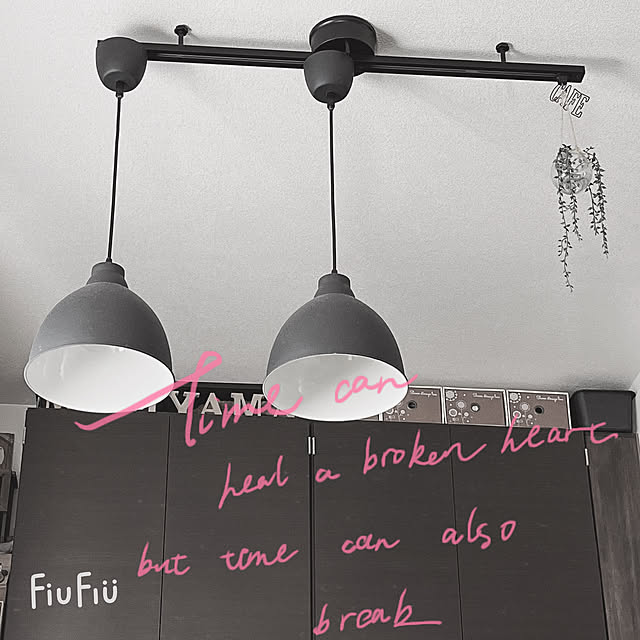 CAFE
YAMA
Time can
heal a broken heart.
but time can also
break
FiuFiü